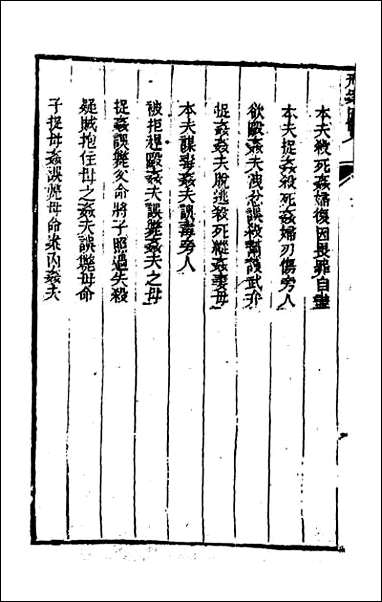 本夫殺死姦婦復因畏罪自盡
本夫捉姦殺死姦婦刃傷旁人
欲毆姦夫洩忿誤殺
捉姦姦夫脫逃殺死縱姦妻母
本夫謀毒姦夫誤毒旁人
被拒趕毆姦夫誤斃姦夫之母
捉姦誤斃父命將子照過失殺
疑賊抱住母之姦夫誤斃母命
子捉母姦誤斃母命案內姦夫